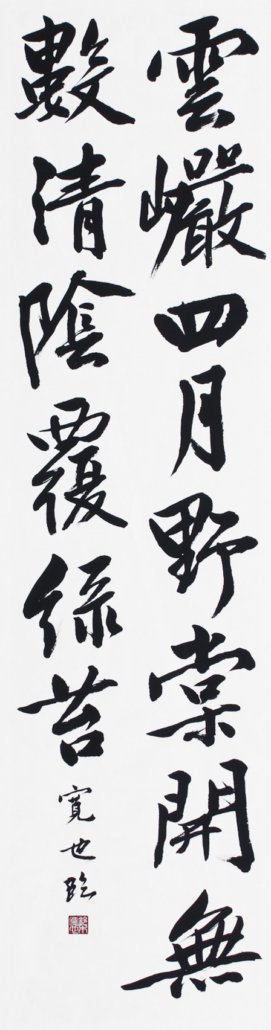 雲巖四月野棠開無
數清陰覆綠苔
寛也臨